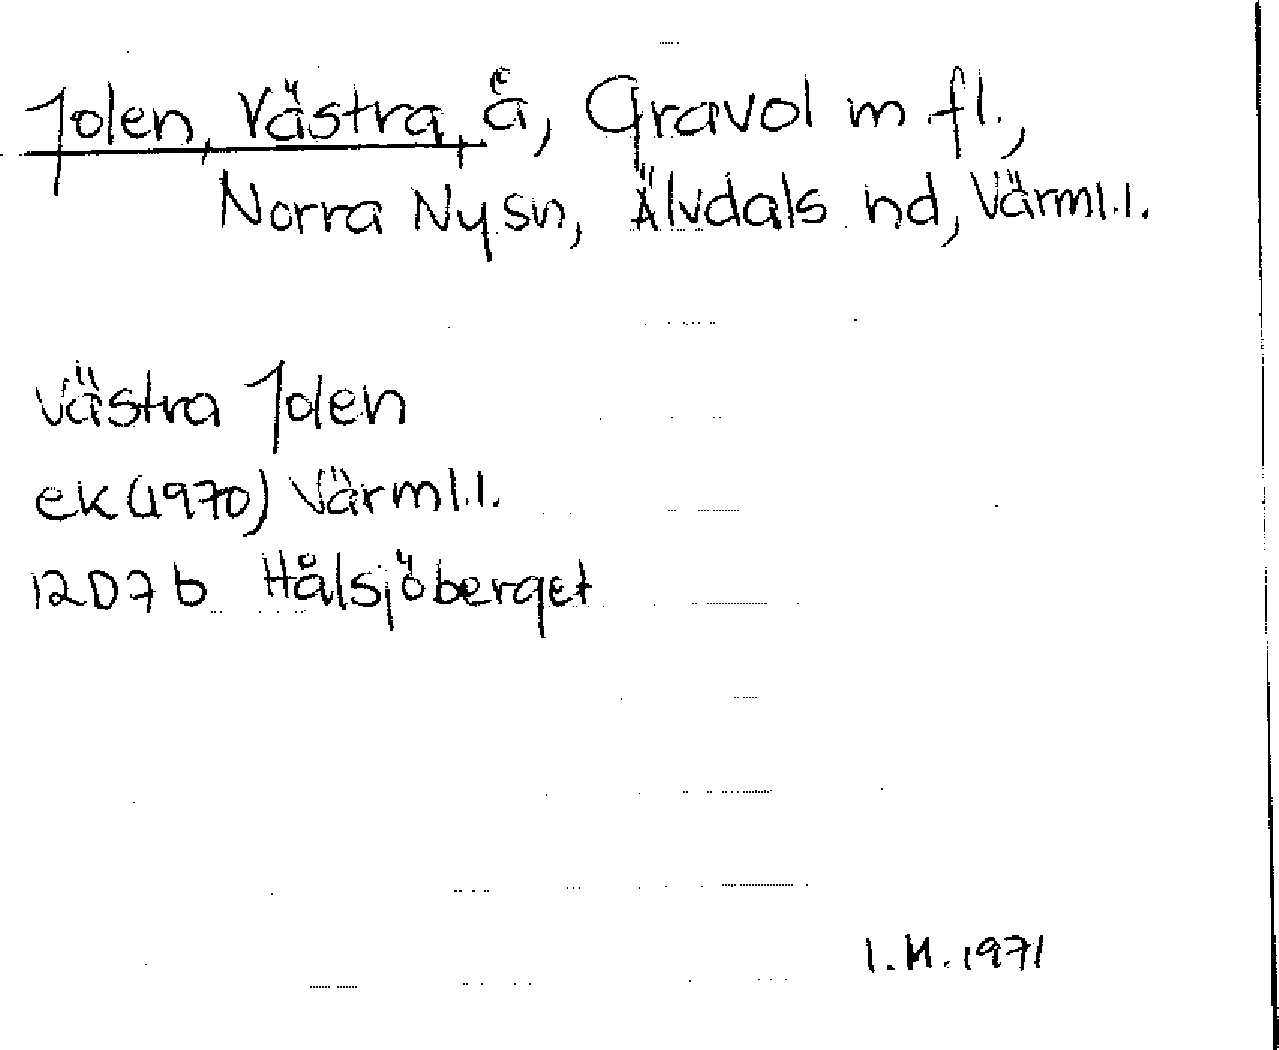 Jolen, Västra, å, Gravol m fl.,
Norra Ny sn, Älvdals hd, Värml.l.
Västra Jolen
ek (1970) Värml.l.
12D7b Hålsjöberget
I.M. 1971